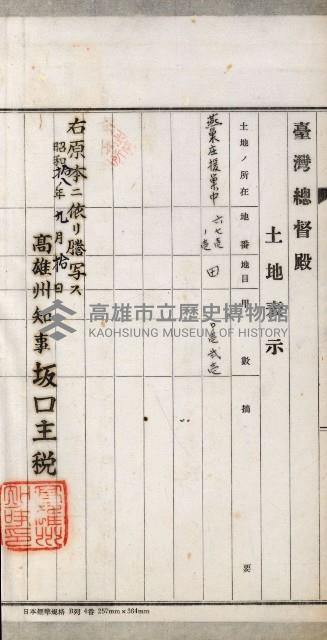 臺灣總督殿
土地表示
土地ノ所在 地番 地目 甲數 摘要
燕巢庄援巢中 六七ノ 田
右原本ニ依リ謄写ス
昭和拾八年九月拾日
高雄州知事 坂口主税
高雄市立歷史博物館
KAOHSIUNG MUSEUM OF HISTORY
日本標準規格 B列 4番 257mm×364mm